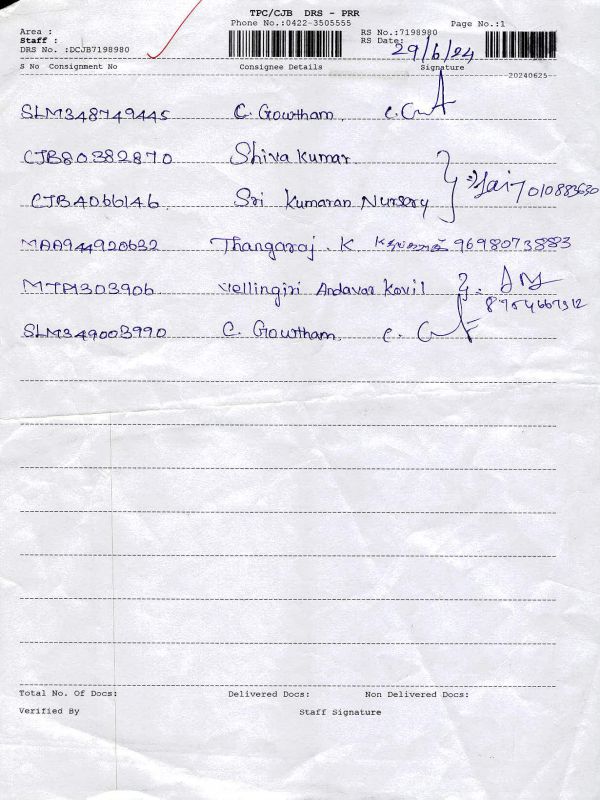 TPC/CJB DRS - PRR
Phone No.:0422-3505555 Page No.:1
Area :
Staff : RS No.:7198980
DRS No. :DCJB7198980 RS Date: 29/6/24
S No Consignment No Consignee Details Signature
20240625
SLM348749445 C. Gowtham. C.
CJB80382870 Shiva Kumar
CJB4066146 Sri Kumaran Nursery 7010883630
MAA944920632 Thangaraj . K 9698073883
MTP1303906 Vellingiri Andavar Kovil
SLM349003990 C. Gowtham. C.
Total No. Of Docs: Delivered Docs: Non Delivered Docs:
Verified By Staff Signature